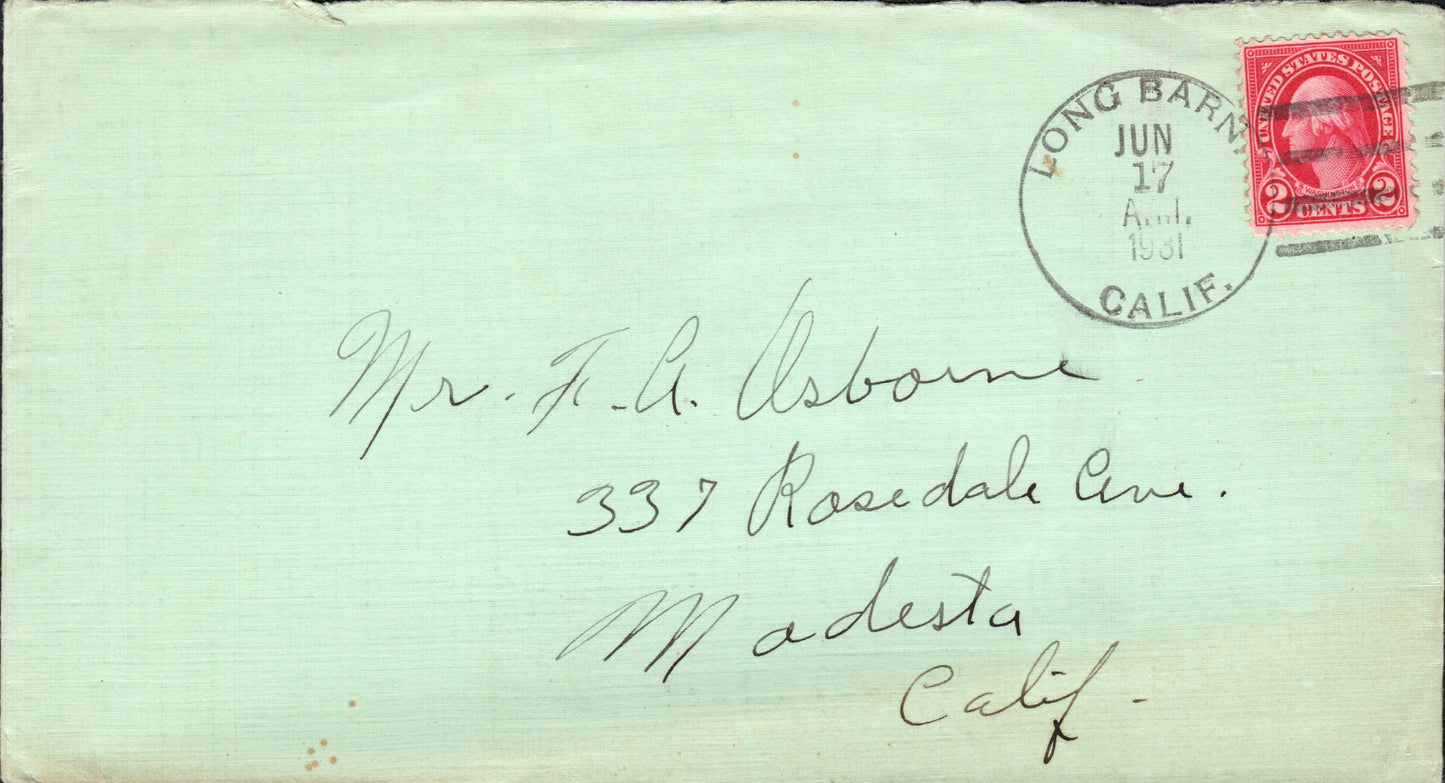 LONG BARN,
JUN
17
A.M.
1931
CALIF.
UNITED STATES POSTAGE
WASHINGTON
2 2
CENTS
Mr. F. A. Osborne
337 Rosedale Ave.
Modesta
Calif.